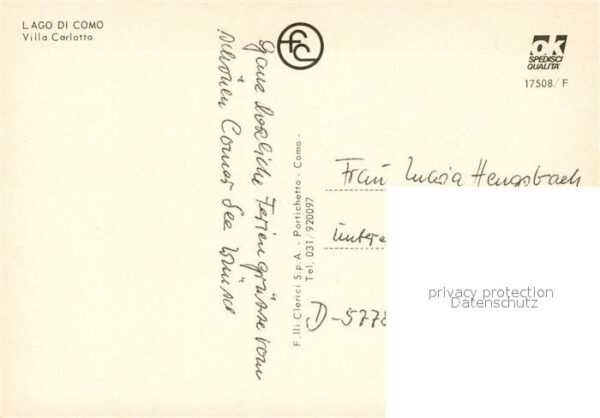 LAGO DI COMO
Villa Carlotta
fcc
ok
SPEDISCI
QUALITÀ
17508/F
Ganz herzliche Feriengrüsse vom
schönen Comer See
F.lli Clerici S.p.A. - Portichetto - Como -
Tel. 031/920097
Frau Maria Hengsbach
Untere
D-5778
privacy protection
Datenschutz